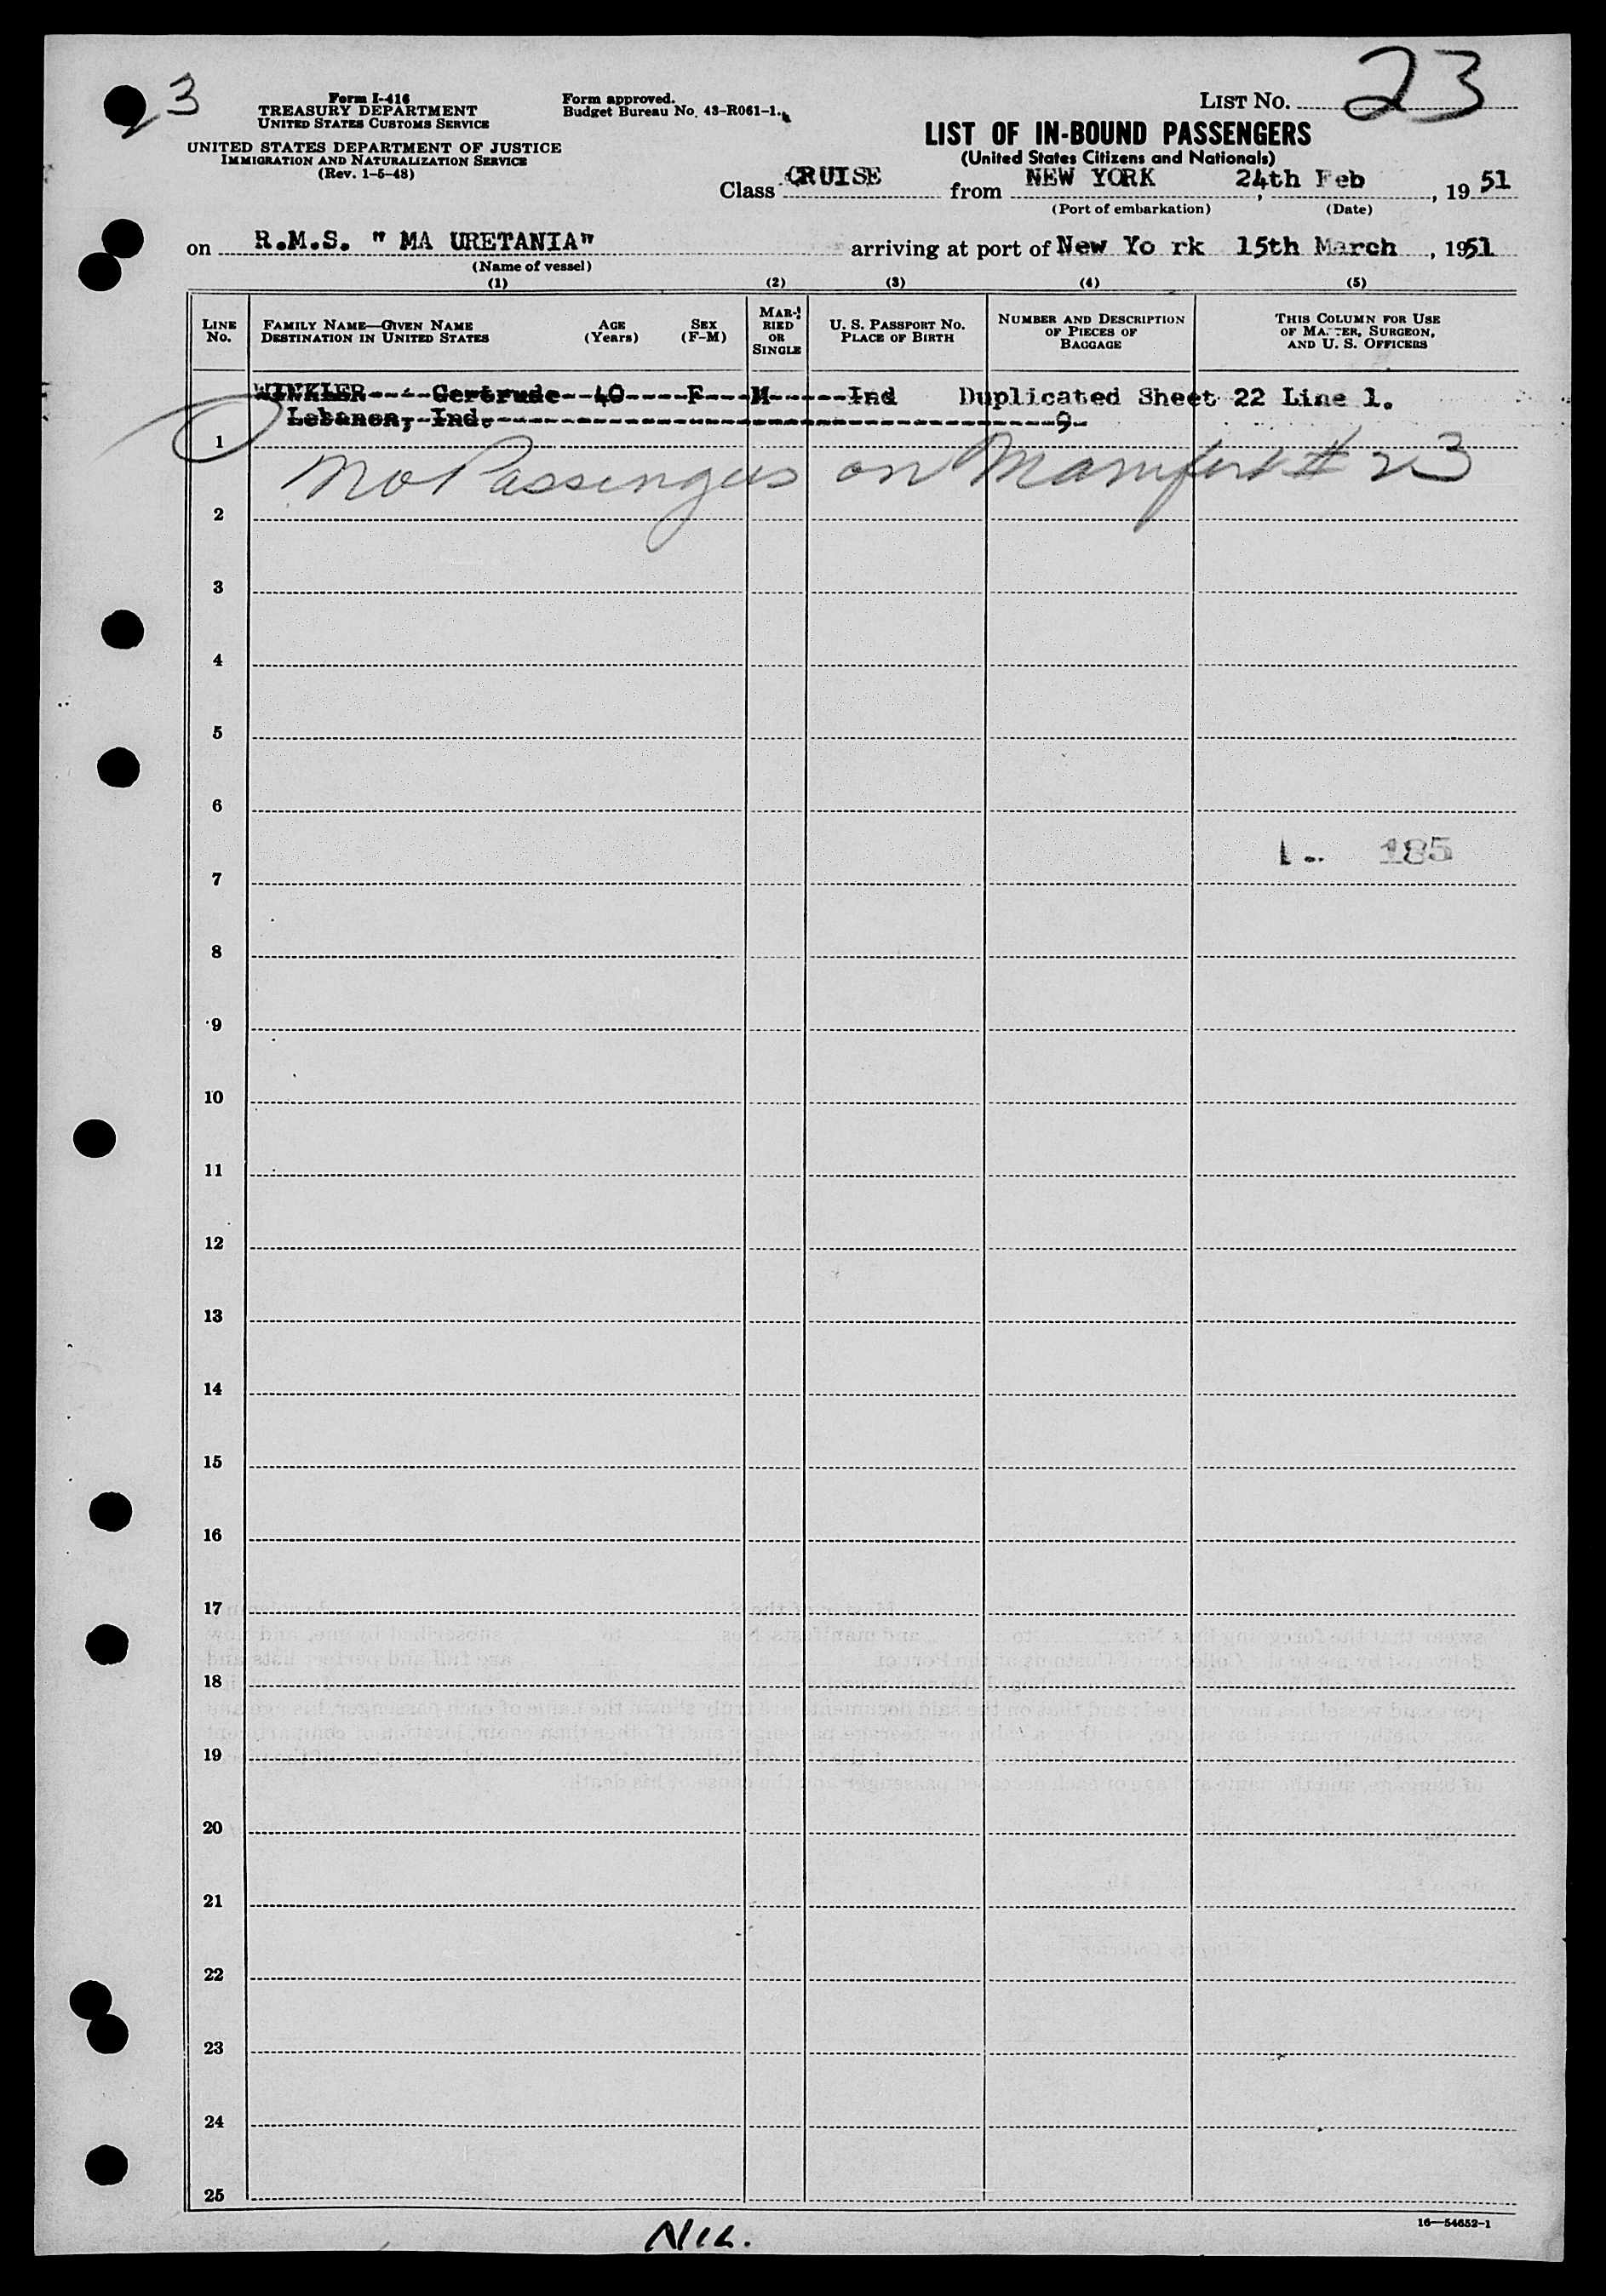 23
Form I-416
TREASURY DEPARTMENT
UNITED STATES CUSTOMS SERVICE
UNITED STATES DEPARTMENT OF JUSTICE
IMMIGRATION AND NATURALIZATION SERVICE
(Rev. 1-5-48)
Form approved.
Budget Bureau No. 43-R061-1.
LIST NO. 23
LIST OF IN-BOUND PASSENGERS
(United States Citizens and Nationals)
Class CRUISE from NEW YORK, 24th Feb, 19 51
(Port of embarkation) (Date)
on R.M.S. " MA URETANIA" arriving at port of New Yo rk 15th March, 1951
(Name of vessel)
(1) (2) (3) (4) (5)
LINE NO. FAMILY NAME—GIVEN NAME DESTINATION IN UNITED STATES AGE (Years) SEX (F-M) MARRIED OR SINGLE U. S. PASSPORT NO. PLACE OF BIRTH NUMBER AND DESCRIPTION OF PIECES OF BAGGAGE THIS COLUMN FOR USE OF MASTER, SURGEON, AND U. S. OFFICERS
WINKLER----Gertrude--40----F---M-----Ind Duplicated Sheet 22 Line 1.
Lebanon, Ind. 9
1
No Passengers on Manifest # 23
2
3
4
5
6
185
7
8
9
10
11
12
13
14
15
16
17
18
19
20
21
22
23
24
25
16—54652-1
NIL.